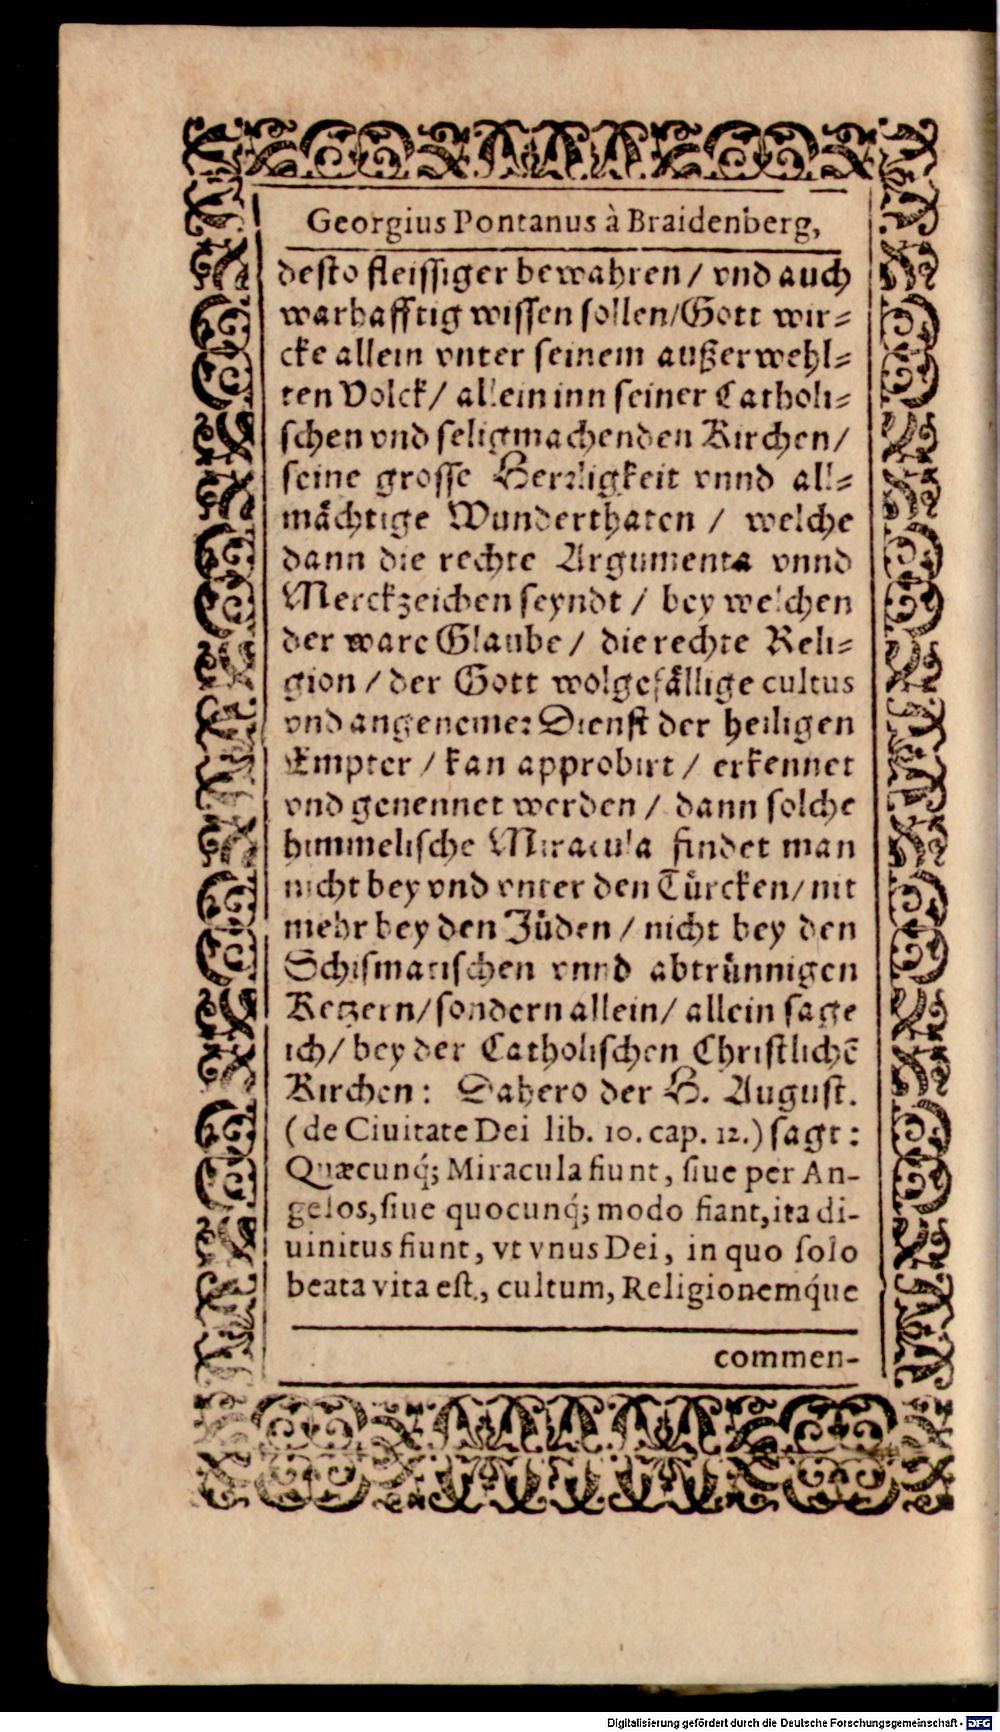 Georgius Pontanus à Braidenberg,
desto fleissiger bewahren / vnd auch
warhafftig wissen sollen/Gott wir⸗
cke allein vnter seinem außerwehl⸗
ten Volck/ allein inn seiner Catholi⸗
schen vnd seligmachenden Kirchen/
seine grosse Herrligkeit vnnd all⸗
mächtige Wunderthaten / welche
dann die rechte Argumenta vnnd
Merckzeichen seyndt / bey welchen
der ware Glaube / die rechte Reli⸗
gion / der Gott wolgefällige cultus
vnd angenemer Dienst der heiligen
Empter / kan approbirt / erkennet
vnd genennet werden / dann solche
himmelische Miracula findet man
nicht bey vnd vnter den Türcken/ nit
mehr bey den Jüden / nicht bey den
Schismatischen vnnd abtrünnigen
Ketzern/ sondern allein/ allein sage
ich/ bey der Catholischen Christlichẽ
Kirchen: Dahero der H. August.
(de Ciuitate Dei lib. 10. cap. 12.) sagt:
Quæcunq́; Miracula fiunt, siue per An-
gelos, siue quocunq́; modo fiant, ita di-
uinitus fiunt, vt vnus Dei, in quo solo
beata vita est, cultum, Religionemq́ue
commen-
Digitalisierung gefördert durch die Deutsche Forschungsgemeinschaft - DFG